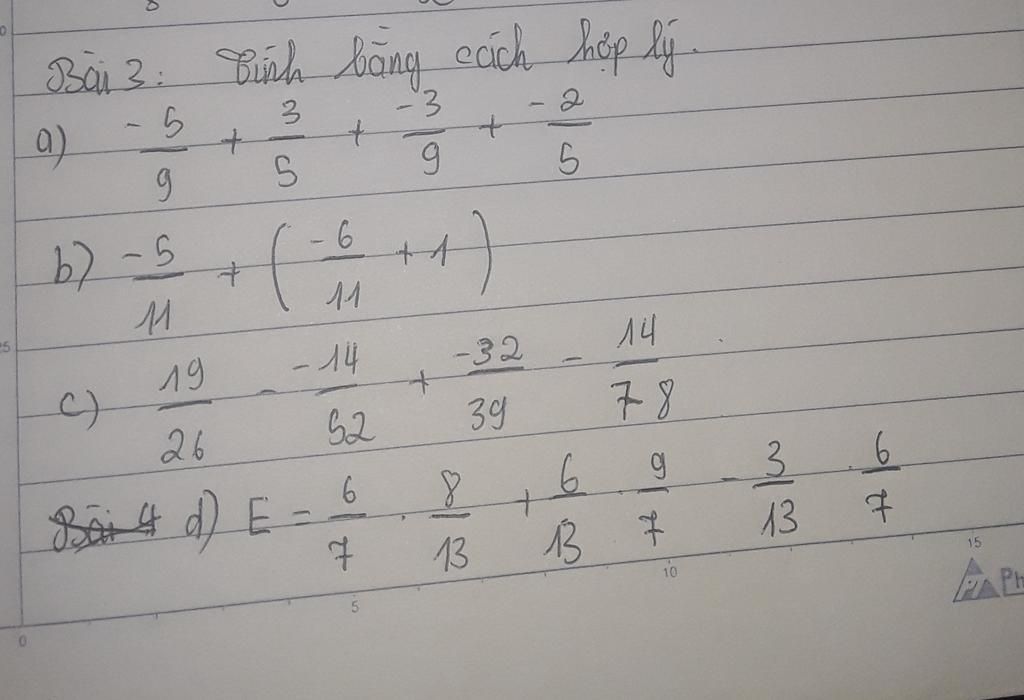 Bài 3: Tính bằng cách hợp lý.
a) -5/9 + 3/5 + -3/9 + -2/5
b) -5/11 + (-6/11 + 1)
c) 19/26 - -14/52 + -32/39 - 14/78
Bài 4 d) E = 6/7 . 8/13 + 6/13 . 9/7 - 3/13 . 6/7
0 5 10 15
Ph